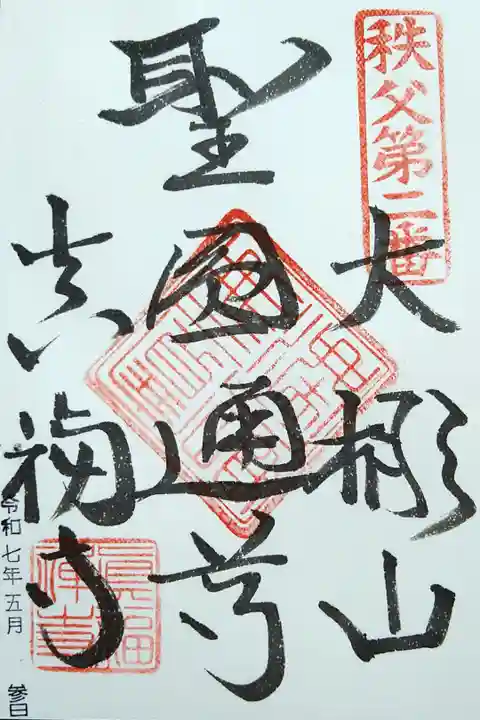 秩父第二番
大棚山
聖圓通尊
真福寺
令和七年五月 参日